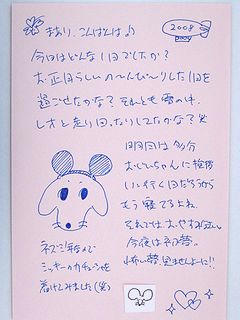 まあり、こんばんは♪
2008
今日はどんな1日でしたか?
お正月らしいの〜んびり〜りした1日を
過ごせたかな? それとも雪の中、
しずと走り回ったりしてたかな?笑
明日は多分
おじいちゃんに挨拶
しに行く日だろうから
もう寝てるよね。
それでは、おやすみなさい。
今夜は初夢。
怖い夢、見ませんように!!
ネズミ年なんで
ミッキーのカチューシャを
着けてみました(笑)